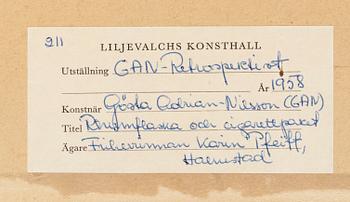 211
LILJEVALCHS KONSTHALL
Utställning GAN-Retrospektivt
År 1958
Konstnär Gösta Adrian-Nilsson (GAN)
Titel och cigarettpaket
Ägare Friherrinnan Karin Pfeiff,
Halmstad